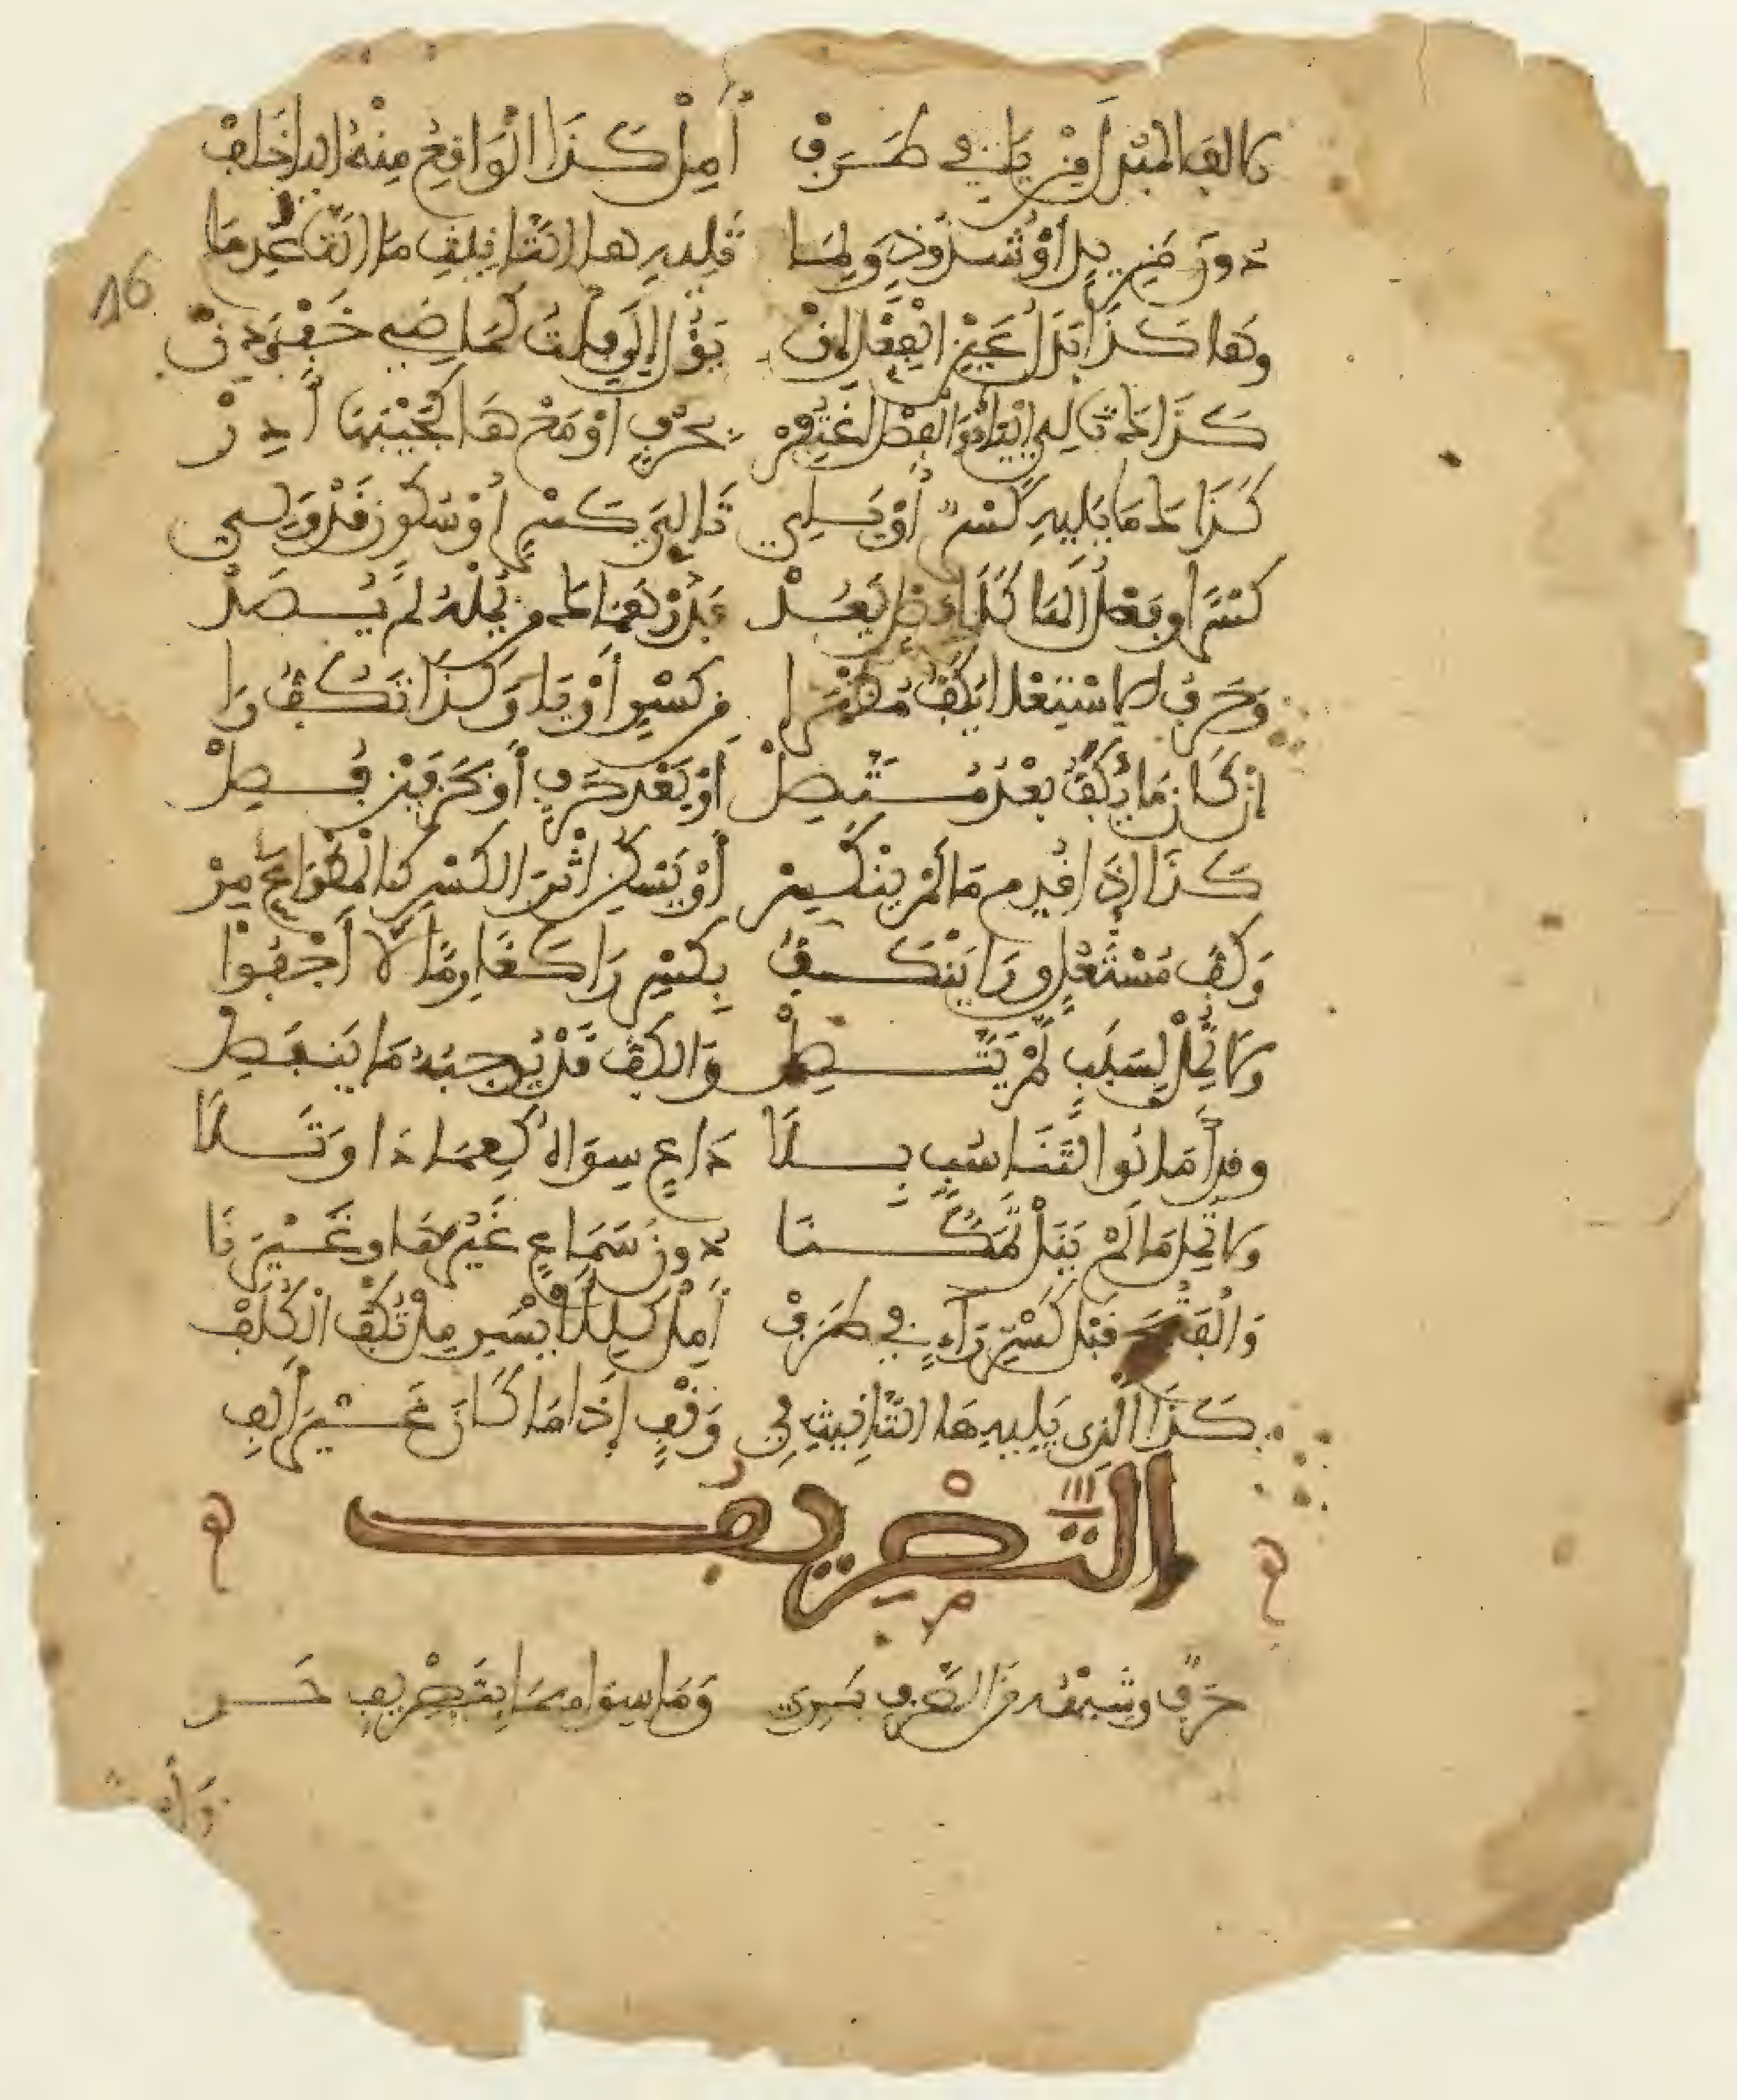 كالالف المبدل من يا في طرف أمل كذا الواقع منه اليا خلف
دون مزيد أو شذوذ ولما تليه ها التأنيث ما الها عدما
وهاكذا بدل عين الفعل إن يؤل إلى فلت كماضي خف ودن
كذاك تالي الياء والفصل اغتفر بحرف أو مع ها كجيبها أدر
كذاك ما يليه كسر أو يلي تالي كسر أو سكون قد ولي
كسرا وفصل الها كلا فصل يعد فدرهماك من يمله لم يصد
وحرف الاستعلا يكف مظهرا من كسر أو يا وكذا تكف را
إن كان ما يكف بعد متصل أو بعد حرف أو بحرفين فصل
كذا إذا قدم ما لم ينكسر أو يسكن اثر الكسر كالمطواع مر
وكف مستعل ورا ينكف بكسر را كغارما لا أجفوا
ولا تمل لسبب لم يتصل والكف قد يوجبه ما ينفصل
وقد أمالوا لتناسب بلا داع سواه كعمادا وتلا
ولا تمل ما لم ينل تمكنا دون سماع غير ها وغير نا
والفتح قبل كسر راء في طرف أمل كللأيسر مل تكف الكلف
كذا الذي يليه ها التأنيث في وقف إذا ما كان غير ألف
التصريف
حرف وشبهه من الصرف بري وما سواهما بتصريف حر
16